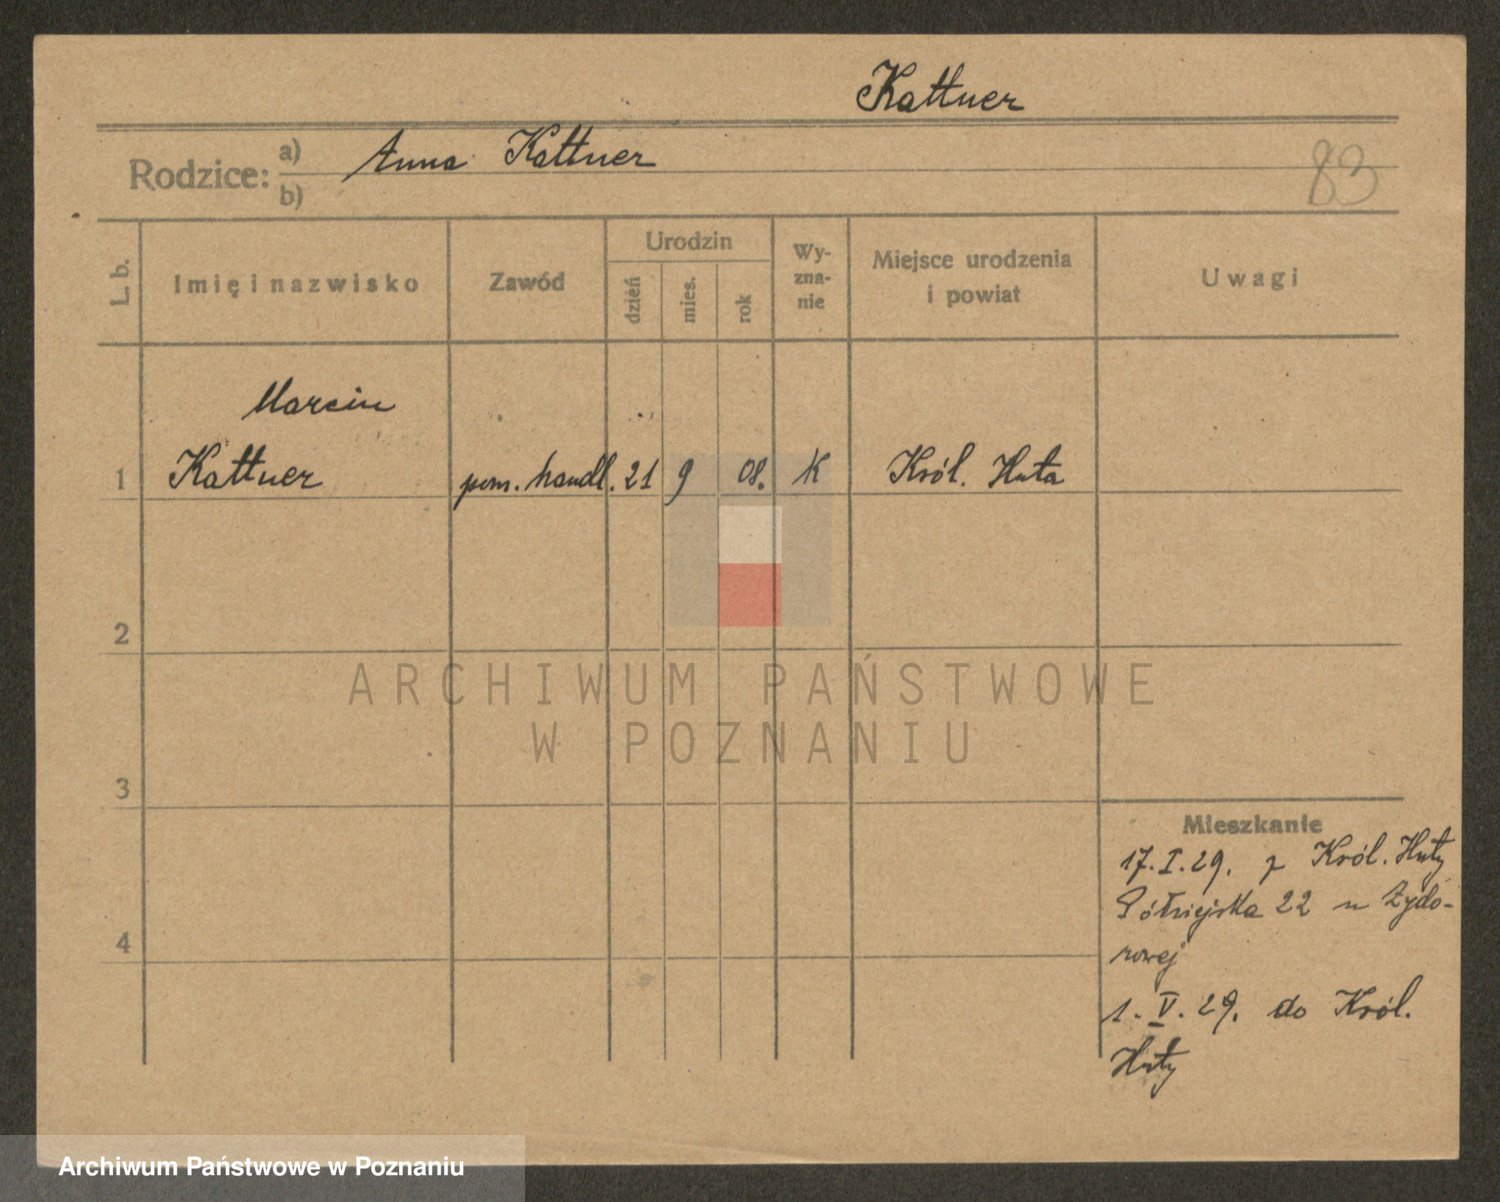 Kattner
Rodzice: a) Anna Kattner
b)
83
L. b. Imię i nazwisko Zawód Urodzin dzień mies. rok Wy-zna-nie Miejsce urodzenia i powiat Uwagi
Marcin
1 Kattner pom. handl. 21 9 08. K Król. Huta
2
3
4
Mieszkanie
17.I.29. z Król. Huty
Półwiejska 22 u Zydo-
rowej
1.V.29. do Król.
Huty
ARCHIWUM PAŃSTWOWE
W POZNANIU
Archiwum Państwowe w Poznaniu